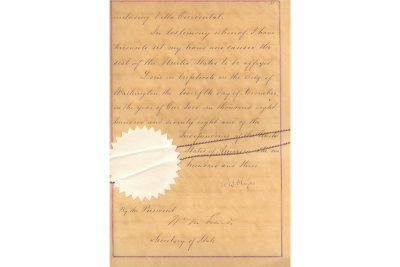 including Villa Occidental.
In testimony whereof I have
hereunto set my hand and caused the
seal of the United States to be affixed.
Done in triplicate in the City of
Washington the twelfth day of November
in the year of Our Lord one thousand eight
hundred and seventy eight and of the
Independence of the United
States of America the one
hundred and third.
R B Hayes
By the President
Wm. M. Evarts
Secretary of State